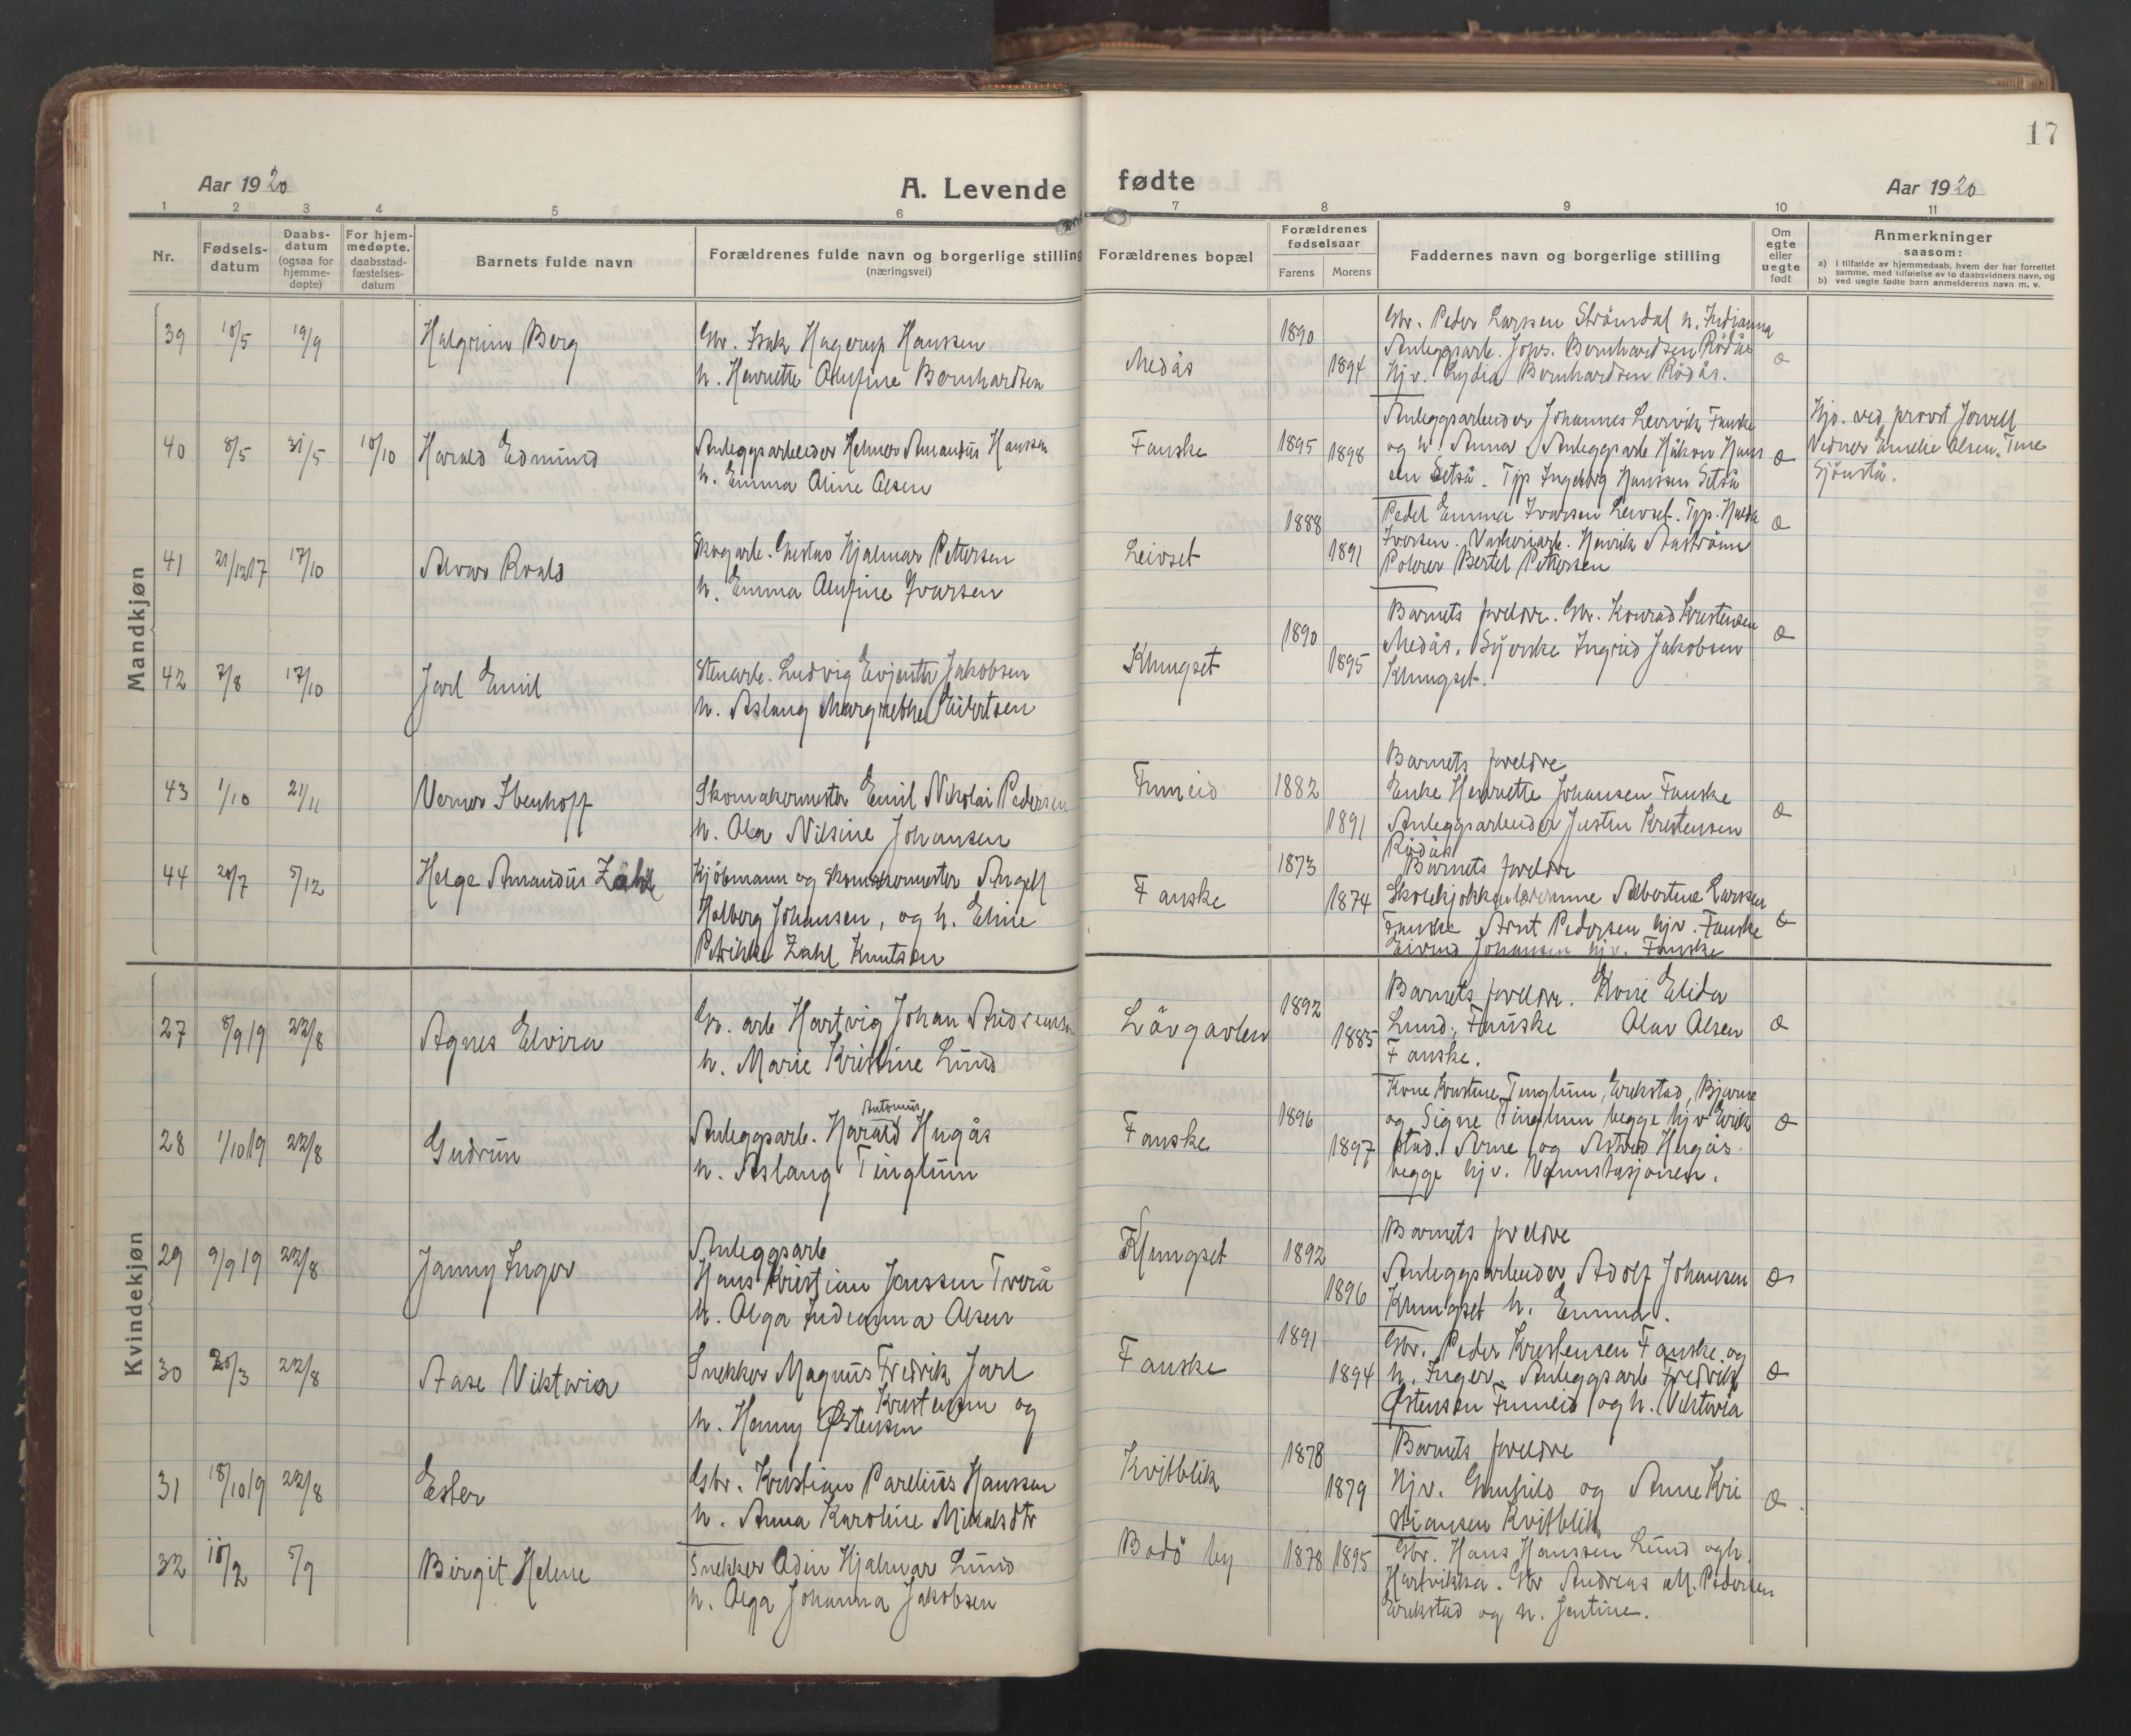 17
Aar 1920
A. Levende fødte
Aar 1920
1 2 3 4 5 6 7 8 9 10 11
Nr.
Fødsels-
datum
Daabs-
datum
(ogsaa for
hjemme-
døpte)
For hjem-
medøpte,
daabsstad-
fæstelses-
datum
Barnets fulde navn
Forældrenes fulde navn og borgerlige stilling
(næringsvei)
Forældrenes bopæl
Forældrenes
fødselsaar
Farens Morens
Faddernes navn og borgerlige stilling
Om
egte
eller
uegte
født
Anmerkninger
saasom:
a) i tilfælde av hjemmedaab, hvem der har forrettet
samme, med tilføielse av to daabsvidners navn, og
b) ved uegte fødte barn anmelderens navn m. v.
Mandkjøn
39 10/5 19/9
Halgrim Berg
Gbr. Isak Hagerup Hanssen
h. Henriette Olufine Bernhardsen
Medås
1890
1894
Gbr. Peder Larssen Strömdal h. Indianna
Anleggsarb. Johs. Bernhardsen Rödås
Hjv. Lydia Bernhardsen Rödås.
e
40 8/5 31/5 10/10
Harald Edmund
Anleggsarbeider Helmer Amandus Hanssen
h. Emma Oline Olsen
Fauske
1895
1898
Anleggsarbeider Johannes Leivrik Fauske
og h. Anna. Anleggsarb Håkon Hans
en Setså. Tjp Ingeborg Hanssen Setså
e
Hjd. ved provst Jowell
Vidner Emelie Olsen. Tine
Sjönstå.
41 21/12 17 17/10
Alvar Roald
Skogarb. Gustav Hjalmar Pettersen
h. Emma Olufine Ivarsen
Leivset
1888
1891
Pedel Emma Ivarsen Leivset. Tjp. Hulda
Ivarsen. Vaskeriarb. Henrik Aaström
Polerer Bertel Pettersen
e
42 7/8 17/10
Jarl Emil
Stenarb. Ludvig Evjenth Jakobsen
h. Aslaug Margrethe Eilertsen
Klungset
1890
1895
Barnets foreldre. Gbr. Konrad Kristensen
Medås. Syerske Ingrid Jakobsen
Klungset.
e
43 1/10 21/11
Verner Ibenhoff
Skomakermester Emil Nikolai Pedersen
h. Olga Nilsine Johansen
Finneid
1882
1891
Barnets foreldre
Enke Henriette Johansen Fauske
Anleggsarbeider Justin Kristensen
Rödås
e
44 20/7 5/12
Helge Amandus Zahl
Kjöbmann og skomakermester Angell
Holberg Johansen, og h. Eline
Petrikke Zahl Knutsen
Fauske
1873
1874
Barnets foreldre
Skolekjøkkenlærerinne Albertine Larssen
Fauske Arnt Pedersen hjv. Fauske
Eivind Johansen hjv. Fauske
e
Kvindekjøn
27 8/9 19 22/8
Agnes Elvira
Gr. arb Hartvig Johan Andreassen
h. Marie Kristine Lund
Lövgavlen
1892
1885
Barnets foreldre. Kone Elida
Lund, Fauske Olav Olsen
Fauske.
e
28 1/10 19 22/8
Gudrun
Antonius
Anleggsarb. Harald Hugås
h. Aslaug Tinglum
Fauske
1896
1897
Kone Kristine Tinglum, Erikstad, Bjarne
og Signe Tinglum begge hjv Erik
stad. Arne og Astrid Hugås
begge hjv. Vannstasjonen.
e
29 9/9 19 22/8
Janny Inger
Anleggsarb
Hans Kristian Jenssen Tverå
h. Olga Indianna Olsen
Klungset
1892
1896
Barnets foreldre
Anleggsarbeider Adolf Johansen
Klungset h. Emma.
e
30 20/3 22/8
Aase Viktoria
Snekker Magnus Fredrik Jarl
Kristensen og
h. Hanny Østensen
Fauske
1891
1894
Gbr. Peder Kristensen Fauske og
h. Inger. Anleggsarb Fredrik
Østensen Finneid og h. Viktoria
e
31 18/10 19 22/8
Ester
Gbr. Kristian Parelius Hanssen
h. Anna Karoline Mikalsdtr
Kvitblik
1878
1879
Barnets foreldre
Hjv. Gunhild og Anne Kri
stiansen Kvitblik
e
32 15/2 5/9
Birgit Helene
Snekker Odin Hjalmar Lund
h. Olga Johanna Jakobsen
Bodö by
1878 1895
Gbr. Hans Hanssen Lund og h.
Hartvikka. Gbr Andreas M. Pedersen
Erikstad og h. Jentine.